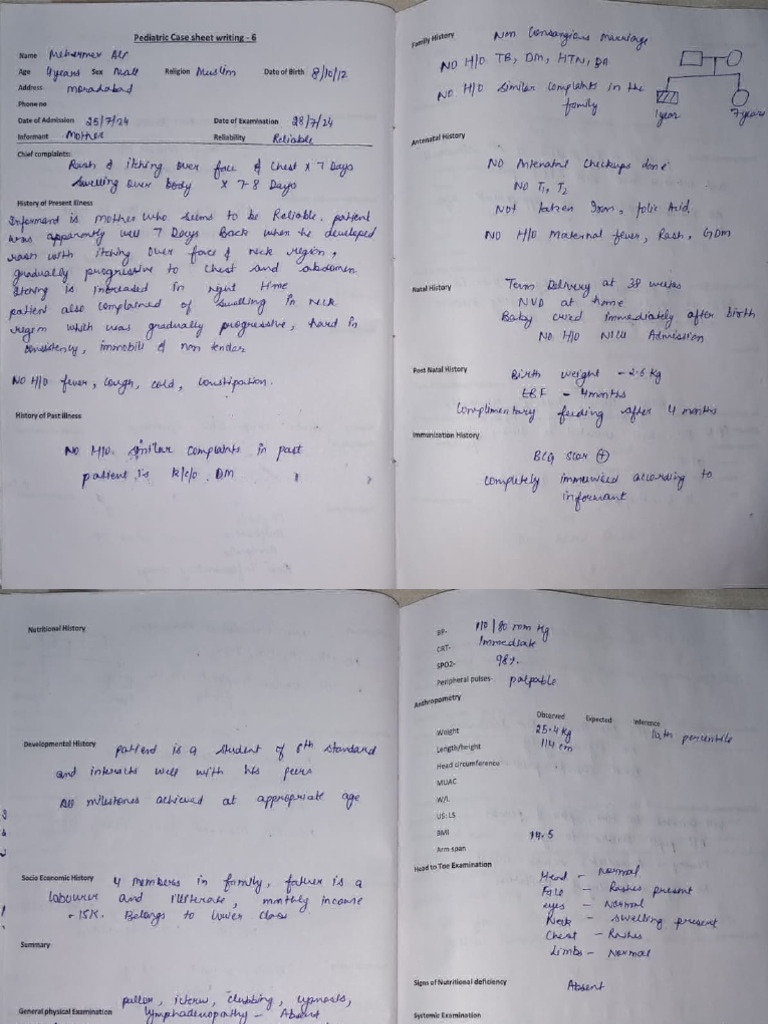 Pediatric Case sheet writing - 6
Name Mehermex Ali
Age 11years Sex Male Religion Muslim Date of Birth 8/10/12
Address moradabad
Phone no
Date of Admission 25/7/24 Date of Examination 28/7/24
Informant Mother Reliability Reliable
Chief complaints:
Rash & itching over face & chest x 7 Days
swelling over body x 7-8 Days
History of Present illness
Informant is mother who seems to be Reliable. patient
was apparently well 7 Days Back when he developed
rash with itching over face & neck region,
gradually progressive to chest and abdomen
itching is increased in night time
patient also complained of swelling in neck
region which was gradually progressive, hard in
consistency, immobile & non tender
NO H/O fever, cough, cold, constipation.
History of Past illness
NO H/O similar complaints in past
patient is k/c/o DM
Family History Non Consangious marriage
NO H/O TB, DM, HTN, BA
NO H/O similar complaints in the
family
11year 7years
Antenatal History
NO Antenatal checkups done
NO T1, T2
Not taken Iron, folic Acid.
NO H/O Maternal fever, Rash, GDM
Natal History Term Delivery at 38 weeks
NVD at home
Baby cried immediately after birth
NO H/O NICU Admission
Post Natal History Birth weight - 2.6 kg
EBF - 4months
Complimentary feeding after 4 months
Immunization History
BCG scar +
completely immunised according to
informant
Nutritional History
Developmental History patient is a student of 6th standard
and interacts well with his peers
All milestones achieved at appropriate age
Socio Economic History 4 members in family, father is a
labourer and illiterate, monthly income
- 15K. Belongs to lower class
Summary
General physical Examination pallor, icterus, clubbing, cyanosis,
lymphadenopathy - Absent
BP- 110/80 mm Hg
CRT- Immediate
SPO2- 98%
Peripheral pulses- palpable
Anthropometry
Observed Expected Inference
Weight 25.4 kg 10th percentile
Length/height 114 cm
Head circumference
MUAC
W/L
US:LS
BMI 19.5
Arm span
Head to Toe Examination
Head - Normal
Face - Rashes present
eyes - Normal
Neck - swelling present
Chest - Rashes
Limbs - Normal
Signs of Nutritional deficiency Absent
Systemic Examination